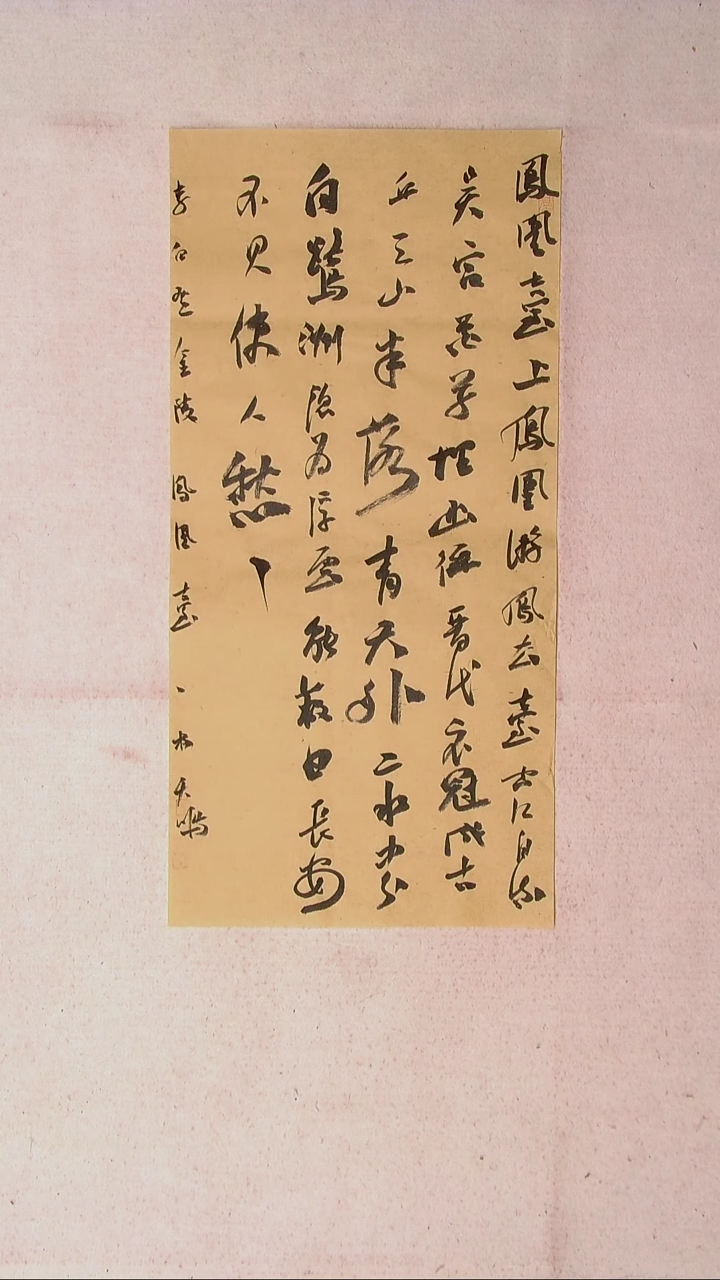 鳳凰臺上鳳凰游鳳去臺空江自流
吳宮花草埋幽徑晉代衣冠成古
丘三山半落青天外二水中分
白鷺洲總為浮雲能蔽日長安
不見使人愁
李白登金陵鳳凰臺